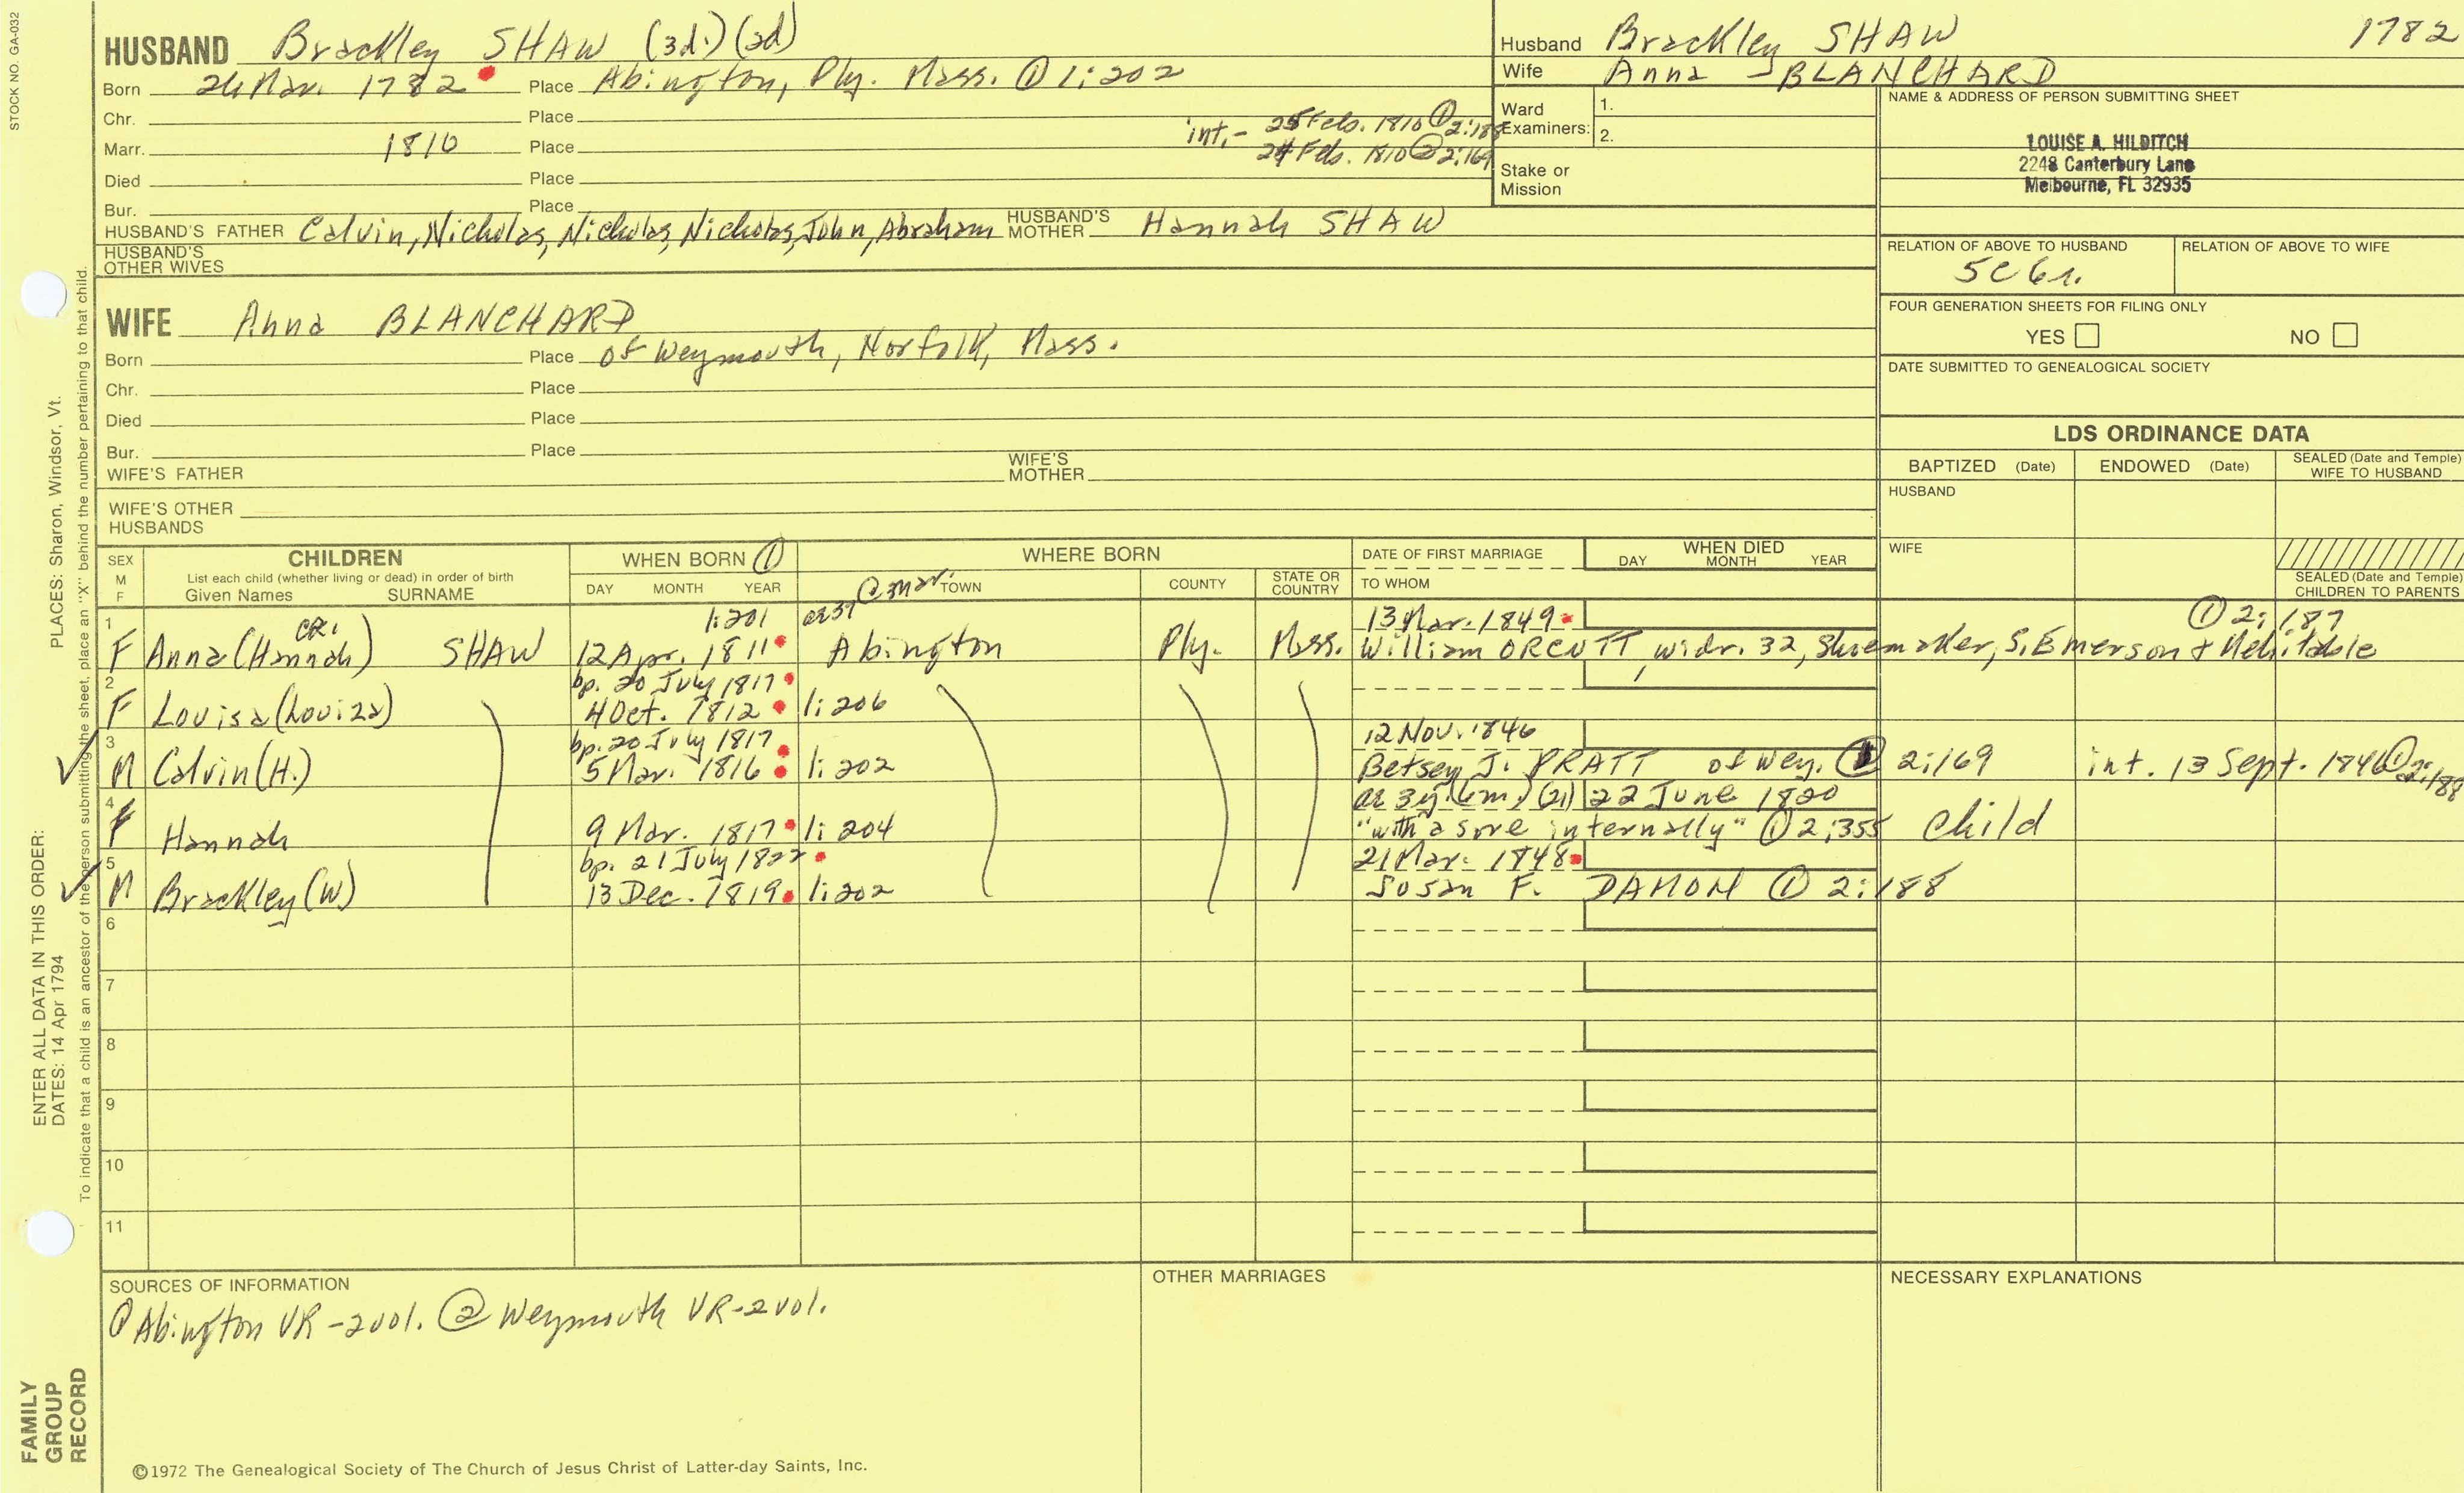 STOCK NO. GA-032
HUSBAND Brackley SHAW (3d.) (2d)
Born 24 Mar. 1782 Place Abington, Ply. Mass. ① 1:202
Chr. Place
int.- 25 Feb. 1810 ① 2:188
Marr. 1810 Place
24 Feb. 1810 ② 2:169
Died Place
Bur. Place
HUSBAND'S FATHER Calvin, Nicholas, Nicholas, Nicholas, John, Abraham HUSBAND'S MOTHER Hannah SHAW
HUSBAND'S OTHER WIVES
Husband Brackley SHAW 1782
Wife Anna BLANCHARD
Ward Examiners: 1.
2.
Stake or Mission
NAME & ADDRESS OF PERSON SUBMITTING SHEET
LOUISE A. HILDITCH
2248 Canterbury Lane
Melbourne, FL 32935
RELATION OF ABOVE TO HUSBAND RELATION OF ABOVE TO WIFE
5C 6r.
FOUR GENERATION SHEETS FOR FILING ONLY
YES NO
DATE SUBMITTED TO GENEALOGICAL SOCIETY
WIFE Anna BLANCHARD
Born Place of Weymouth, Norfolk, Mass.
Chr. Place
Died Place
Bur. Place
WIFE'S FATHER WIFE'S MOTHER
WIFE'S OTHER HUSBANDS
LDS ORDINANCE DATA
BAPTIZED (Date) ENDOWED (Date) SEALED (Date and Temple) WIFE TO HUSBAND
HUSBAND
WIFE
SEALED (Date and Temple) CHILDREN TO PARENTS
SEX M F CHILDREN WHEN BORN ① WHERE BORN DATE OF FIRST MARRIAGE WHEN DIED
List each child (whether living or dead) in order of birth
Given Names SURNAME DAY MONTH YEAR TOWN COUNTY STATE OR COUNTRY TO WHOM DAY MONTH YEAR
@ mar.
1 CR1 1:201 ae 37 13 Mar. 1849 ① 2:187
F Anna (Hannah) SHAW 12 Apr. 1811 Abington Ply. Mass. William ORCUTT, widr. 32, Shoemaker, S. Emerson & Mehitable
2 bp. 20 July 1817
F Louisa (Louiza) 4 Oct. 1812 1:206
3 bp. 20 July 1817 12 Nov. 1846
M Calvin (H.) 5 Mar. 1816 1:202 Betsey J. PRATT of Wey. 2:169 int. 13 Sept. 1846 ① 2:188
4 ae 3y. (6m.) (21) 22 June 1820
F Hannah 9 Mar. 1817 1:204 "with a sore internally" ① 2:355 child
5 bp. 21 July 1822 21 Mar. 1848
M Brackley (W) 13 Dec. 1819 1:202 Susan F. DAMON ① 2:188
6
7
8
9
10
11
SOURCES OF INFORMATION
① Abington VR - 2 vol. ② Weymouth VR - 2 vol.
OTHER MARRIAGES
NECESSARY EXPLANATIONS
©1972 The Genealogical Society of The Church of Jesus Christ of Latter-day Saints, Inc.
FAMILY GROUP RECORD
ENTER ALL DATA IN THIS ORDER:
DATES: 14 Apr 1794
PLACES: Sharon, Windsor, Vt.
To indicate that a child is an ancestor of the person submitting the sheet, place an "X" behind the number pertaining to that child.